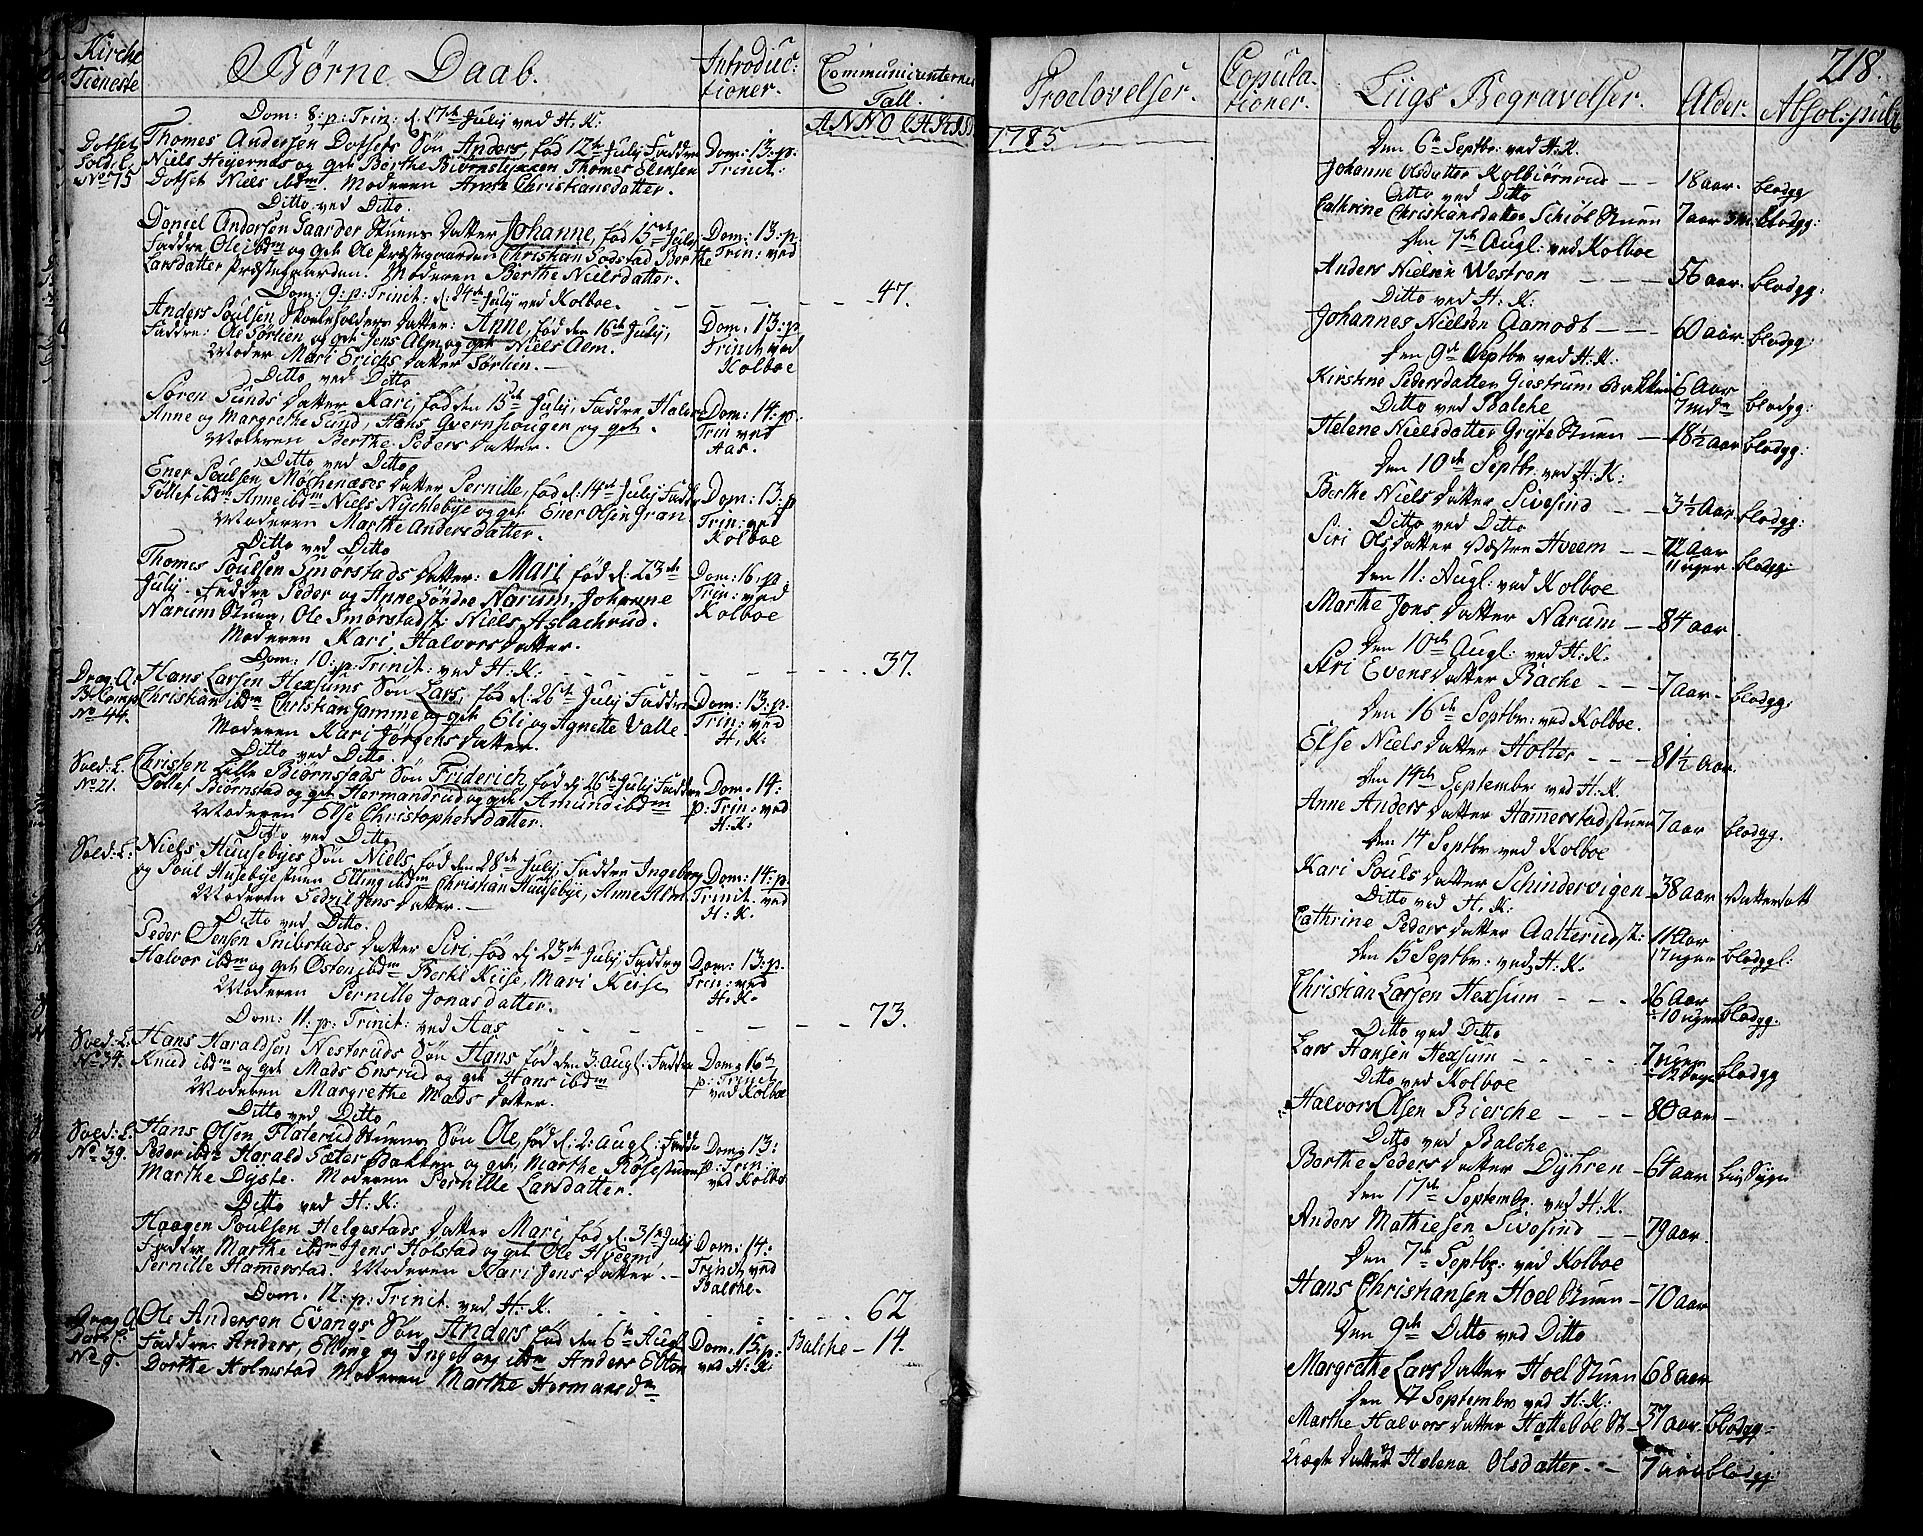 Kirche Tieneste
Børne Daab.
Introduc: tioner.
Communicanternes Tall.
ANNO CHRISTI
Dom: 8: p: Trin: d. 17de July ved H: K:
Thomas Andersen Dotsets Søn Anders, fød 12te July Faddre
Niels Heyernæs og get Berthe Thomes Elensen
Dotset Niels ibdm. Moderen Anne Christiansdatter.
Dotset
Sold: L:
No 75
Dom: 13: p:
Trinit:
Ditto ved Ditto.
Daniel Andersen Gaarder Stuens Datter Johanne, fød 15de July
Faddre Ole ibdm og get Ole Præstegaarden Christian Sodstad Berthe
Larsdatter Præstegaarden. Moderen Berthe Nielsdatter.
Dom: 13: p:
Trin: ved
Dom: 9: p: Trinit: d: 24de July ved Kolboe. 47.
Anders Poulsen Skoeleholders Datter: Anne, fød den 16de July,
Faddre: Ole Sørlien og get Jens Alm og get Niels Aem.
Moder Mari Erichs Datter Sørlien.
Dom: 13: p
Trinit ved
Kolboe
Ditto ved Ditto
Søren Sunds Datter Kari, fød den 15de July, Faddre Halvor
Anne og Margrethe Sund, Hans Qvernhouger og get.
Moderen Berthe Peders Datter.
Dom: 14: p:
Trin ved
Aas.
Ditto ved Ditto
Ener Poulsen Datter Pernille, fød d: 14de July Faddre
Tollef ibdm Anne ibdm Niels Nychlebye og get Ener Olsen Gran
Moderen Marthe Anders Datter.
Dom: 13: p
Trin: ved
Kolboe
Ditto ved Ditto
Thomes Poulsen Smørstads Datter: Mari fød d: 23de
July. Faddre Peder og Anne Søndre Narum, Johanne
Narum Stuen, Ole Smørstadst: Niels Aslachrud.
Moderen Kari Halvors Datter.
Dom: 16. p.
Trin: ved
Kolboe
Dom: 10: p: Trinit: ved H: K: 37.
Drag: A:
B: Comp
No 44.
Hans Larsen Hexsums Søn Lars, fød d: 26de July Faddre
Christian ibdm Christian Gamme og get Eli og Agnette Valle
Moderen Kari Jørgens Datter.
Dom: 13: p:
Trin: ved
H: K:
Ditto ved Ditto.
Sved: L.
No 21.
Christen Lille Biørnstads Søn Friderich, fød d: 26de July Faddre
Tollef Biørnstad og get Hermandrud og get Amund ibdm
Moderen Else Christophers Datter.
Dom. 14:
p: Trin: ved
H: K:
Ditto ved Ditto
Sved: L:
Niels Huusebyes Søn Niels, fød den 28de July, Faddre Ingeborg
og Poul Husebyestuen Elling ibdm Christian Huusebye, Anne Alm
Moderen Jens Datter.
Dom: 14: p
Trinit. ved
H: K.
Ditto ved Ditto.
Peder Jensen Snibstads Datter Siri, fød d: 23de July Faddre
Halvor ibdm og get Østen ibdm Berthe Kiise, Mari Kiise
Moderen Pernille Jonas Datter.
Dom: 13: p.
Trin: ved
H: K.
Dom: 11: p: Trinit: ved Aas 73.
Sved: L.
No 34.
Hans Haraldsen Nesteruds Søn Hans fød den 3: Augl: Faddre
Knud ibdm og get Mads Ensrud og get Hans ibdm
Moderen Margrethe Mads Datter.
Dom: 16
p: Trinit
ved Kolboe
Ditto ved Ditto
Sved: L:
No 39.
Hans Olsen Flaterud Stuens Søn Ole, fød d: 2: Augl: Faddre
Peder ibdm Harald Sæter Bakken og get, Marthe Røsestuen
Marthe Dyste. Moderen Pernille Larsdatter.
Dom: 13:
p: Trin:
ved Kolbo
Ditto ved H: K:
Haagen Poulsen Helgestads Datter Mari, fød d. 31te July
Faddre Marthe ibdm Jens Holstad og get Ole Hveem
Pernille Hamerstad. Moderen Kari Jens Datter.
Dom: 14:
Trinit ved
Balche.
Dom. 12: p: Trinit. ved H: K. 62
Drag: A.
No 9.
Ole Andersen Evangs Søn Anders fød den 6te Augl
Faddre: Anders, Elling og Ingeborg ibdm Anders Elton
Dorthe Holmstad Moderen Marthe Hermansdr
Dom. 15. p:
ved H: K
Balche - 14.
Troelovelser.
Copula- tioner.
Liigs Begravelser.
Alder.
Absol: publ
218.
1785
Den 6te Septbr: ved H: K.
Johanne Olsdatter Kolbiørnrud 18 aar. blodgg
Ditto ved Ditto
Cathrine Christiansdatter Schiøl Stuen 7 aar 3 M: blodgg:
den 7de Augl: ved Kolboe
Anders Nielsen Westren 56 aar. blodgg:
Ditto ved H: K:
Johannes Nielsen Aamodt 60 aar blodgg:
den 9de Septbr ved H: K.
Kirstine Pedersdatter Giestrum Bakken 6 Aar 7 mdr blodgg:
Ditto ved Balche
Helene Nielsdatter Gryte Stuen 18½ aar blodgg:
den 10de Septbr. ved H: K:
Berthe Niels Datter Sivesind 3½ Aar. blodgg:
Ditto ved Ditto
Siri Ols Datter Østre Hveem aar 11 uger blodgg:
den 11: Augl: ved Kolboe
Marthe Jons Datter Narum 84 aar
den 10de Augl: ved H: K.
Siri Evens Datter Bache 7 aar blodgg:
den 16de Septbr: ved Kolboe.
Else Niels Datter Holter 81½ Aar.
den 14de Septembr ved H: K.
Anne Anders Datter Hamerstadstuen 7 aar blodgg.
den 14 Septbr ved Kolboe
Kari Pouls Datter Schindervigen 38 aar Vattersott
Ditto ved H: K:
Cathrine Peders Datter Aalterudst: 11 Aar 17 uger blodggl:
den 15 Septbr: ved H: K.
Christian Larsen Hexsum 26 Aar 10 uger blodgg.
Ditto ved Ditto
Lars Hansen Hexsum 7 uger Dage blodgg
Ditto ved Kolboe
Halvor Olsen Bierche 80 aar
Ditto ved Balche
Berthe Peders Datter Dyhren 64 aar
den 17de Septembr. ved H: K.
Anders Mathiesen Sivesind 79 aar.
den 7de Septbr: ved Kolboe
Hans Christiansen Hoel Stuen 70 aar
den 9de Ditto ved Ditto
Margrethe Lars Datter Hoel Stuen 68 aar
den 17 Septembr ved H: K:
Marthe Halvors Datter St 37 aar. blodgg
Datter Helena Olsdatter 7 aar blodgg: